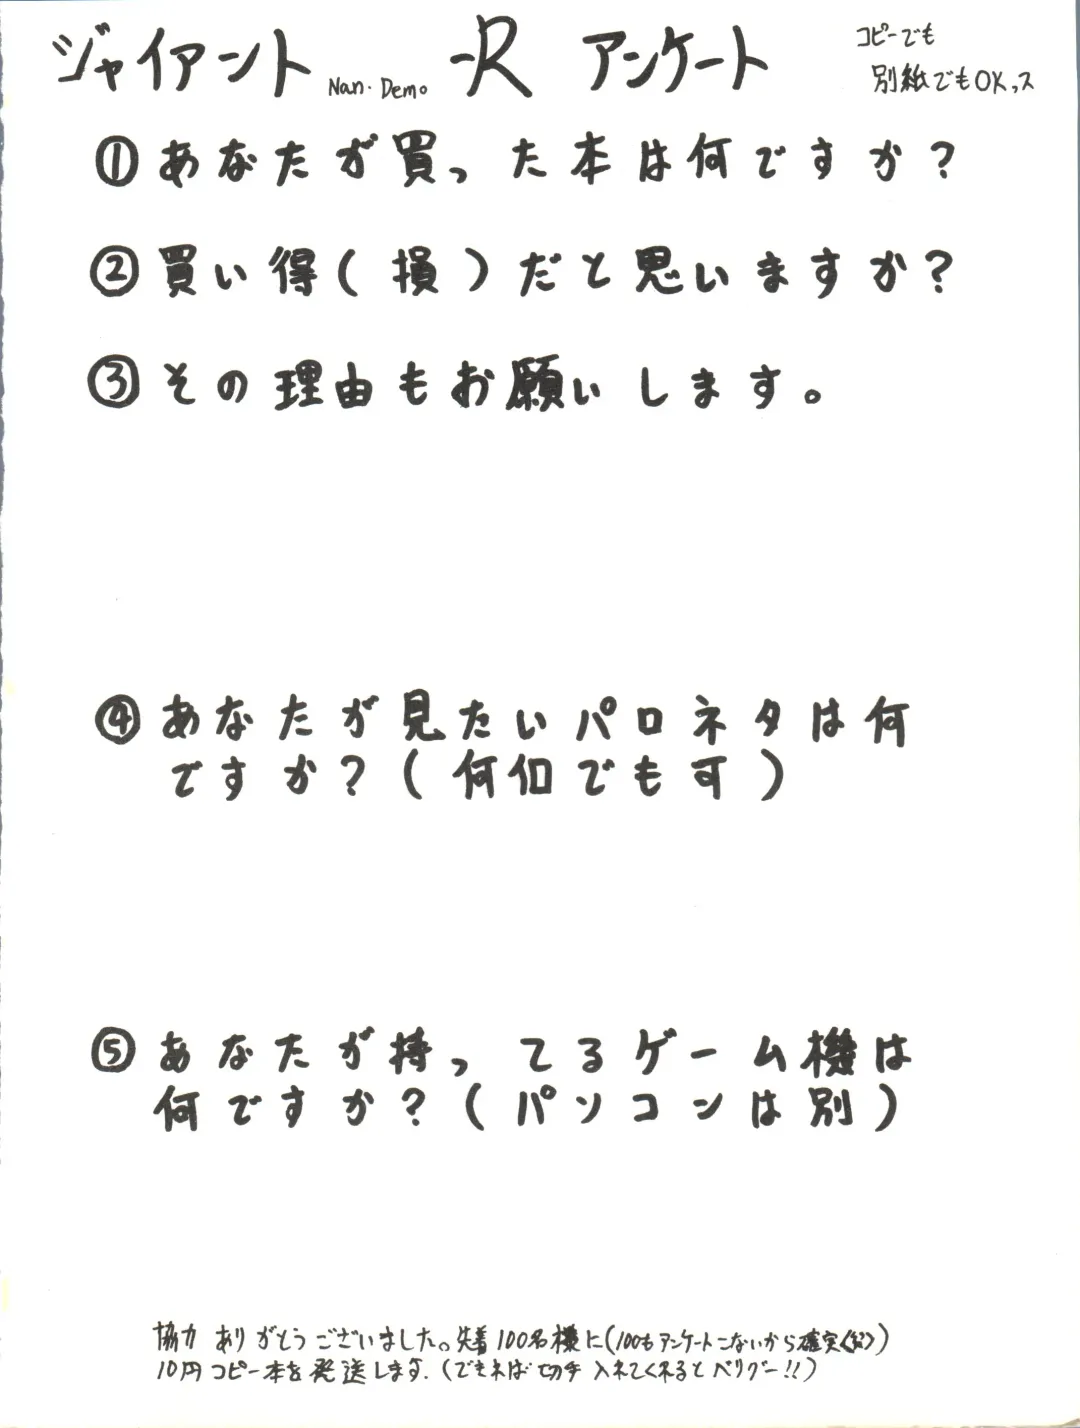 ジャイアント Nan・Demo -R アンケート
コピーでも
別紙でもOKっス
①あなたが買った本は何ですか?
②買い得(損)だと思いますか?
③その理由もお願いします。
④あなたが見たいパロネタは何
ですか?(何個でも可)
⑤あなたが持ってるゲーム機は
何ですか?(パソコンは別)
協力ありがとうございました。先着100名様に(100もアンケートこないから確実)
10円コピー本を発送します.(できれば切手入れてくれるとベリグー!!)